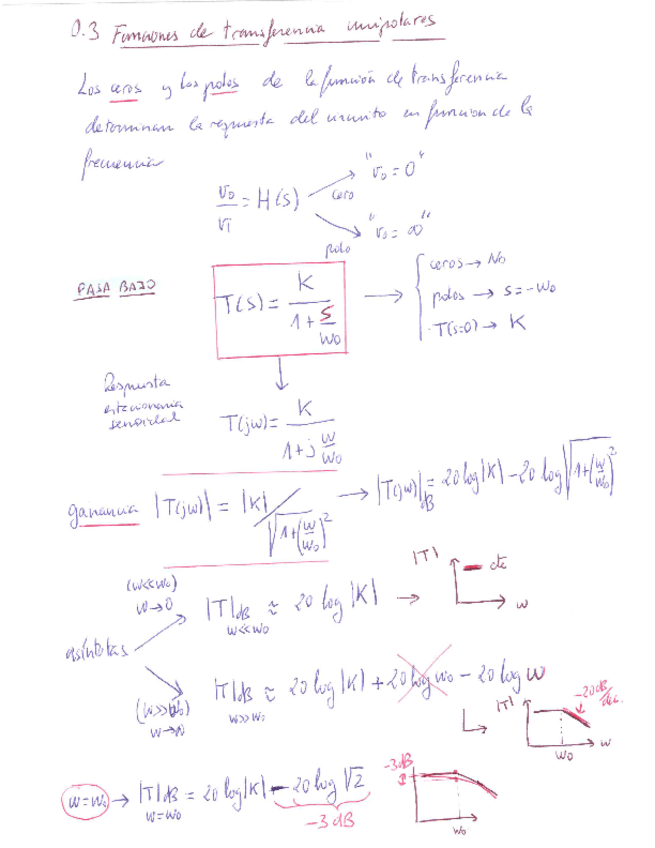 0.3 Funciones de transferencia unipolares
Los ceros y los polos de la función de transferencia
determinan la respuesta del circuito en función de la
frecuencia
vo/vi = H(s)
cero
"vo = 0"
polo
"vo = ∞"
PASA BAJO
T(s) = K / (1 + s/wo)
ceros → No
polos → s = -wo
T(s=0) → K
Respuesta
estacionaria
senoidal
T(jw) = K / (1 + j w/wo)
ganancia |T(jw)| = |K| / √(1+(w/wo)²) → |T(jw)|dB = 20 log|K| - 20 log √(1+(w/wo)²)
asíntotas
(w<<wo)
w→0
|T|dB ≈ 20 log |K| →
w<<wo
|T|
cte
w
(w>>wo)
w→∞
|T|dB ≈ 20 log |K| + 20 log wo - 20 log w
w>>wo
|T|
-20dB/dec.
wo
w
w=wo → |T|dB = 20 log|K| - 20 log √2
w=wo
-3 dB
-3dB
wo